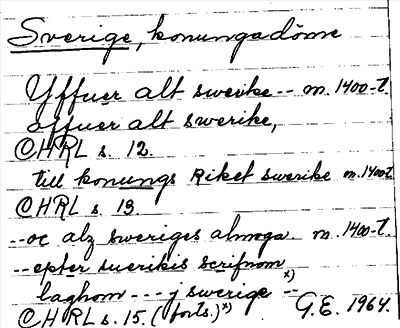 Sverige, konungadöme
Yffuer alt swerike -- m. 1400-t.
offuer alt swerike,
CHRL s. 12.
till konungs Riket swerike m. 1400t
CHRL s. 13.
--oc alz sweriges almoga. m. 1400-t.
--epter suerikis scrifnom
laghom --- j swerige --x)
CHRL s. 15. (forts.)x) G.E. 1964.